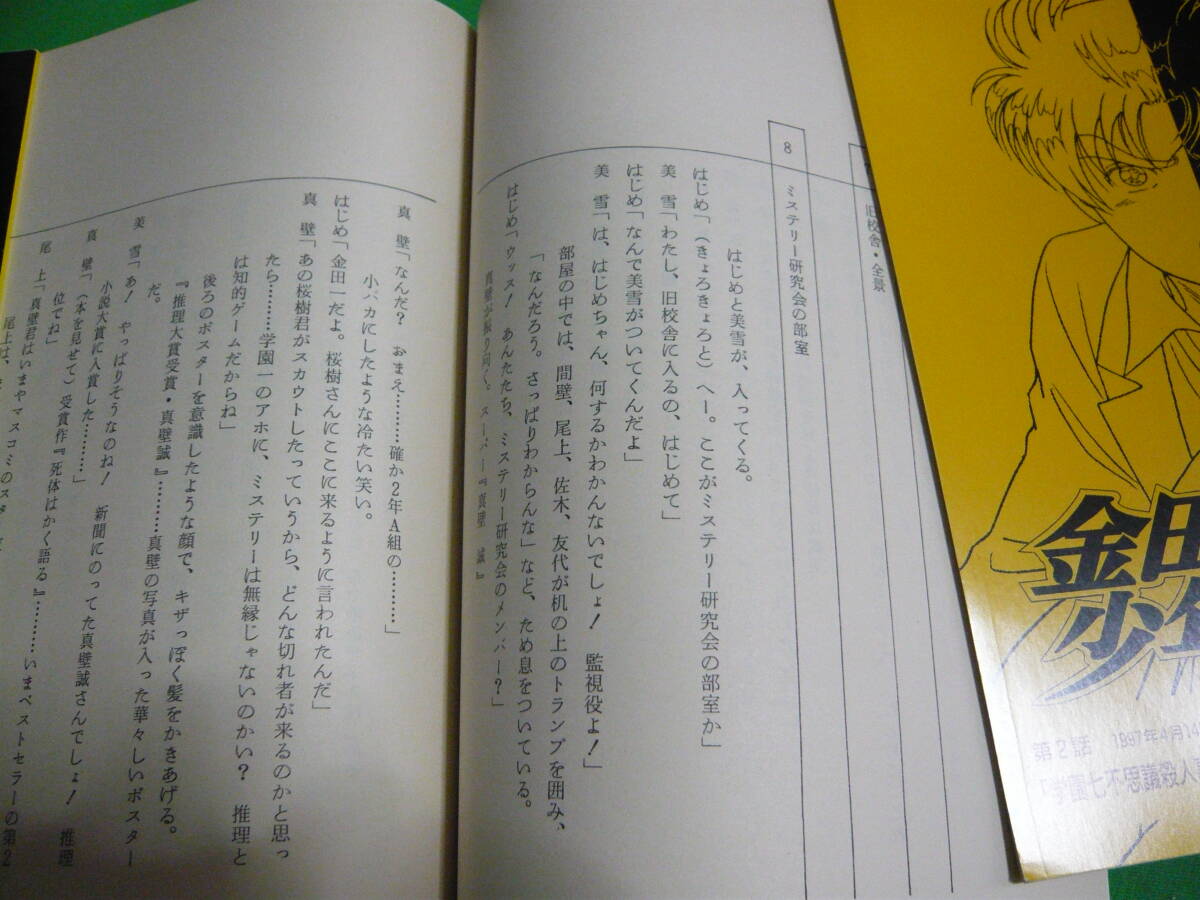 旧校舎・全景
8 ミステリー研究会の部室
はじめと美雪が、入ってくる。
はじめ「(きょろきょろと)へー。ここがミステリー研究会の部室か」
美 雪「わたし、旧校舎に入るの、はじめて」
はじめ「なんで美雪がついてくんだよ」
美 雪「は、はじめちゃん、何するかわかんないでしょ! 監視役よ!」
部屋の中では、間壁、尾上、佐木、友代が机の上のトランプを囲み、
「なんだろう。さっぱりわからんな」など、ため息をついている。
はじめ「ウッス! あんたたち、ミステリー研究会のメンバー?」
真壁が振り向く。スーパー『真壁 誠』
真 壁「なんだ? おまえ………確か2年A組の…………」
小バカにしたような冷たい笑い。
はじめ「金田一だよ。桜樹さんにここに来るように言われたんだ」
真 壁「あの桜樹君がスカウトしたっていうから、どんな切れ者が来るのかと思っ
たら………学園一のアホに、ミステリーは無縁じゃないのかい? 推理と
は知的ゲームだからね」
後ろのポスターを意識したような顔で、キザっぽく髪をかきあげる。
『推理大賞受賞・真壁誠』………真壁の写真が入った華々しいポスター
だ。
美 雪「あ! やっぱりそうなのね! 新聞にのってた真壁誠さんでしょ! 推理
小説大賞に入賞した………」
真 壁「(本を見せて)受賞作『死体はかく語る』………いまベストセラーの第2
位でね」
尾 上「真壁君はいまやマスコミのス
尾上は、
金田
少年
第2話 1997年4月14
「学園七不思議殺人